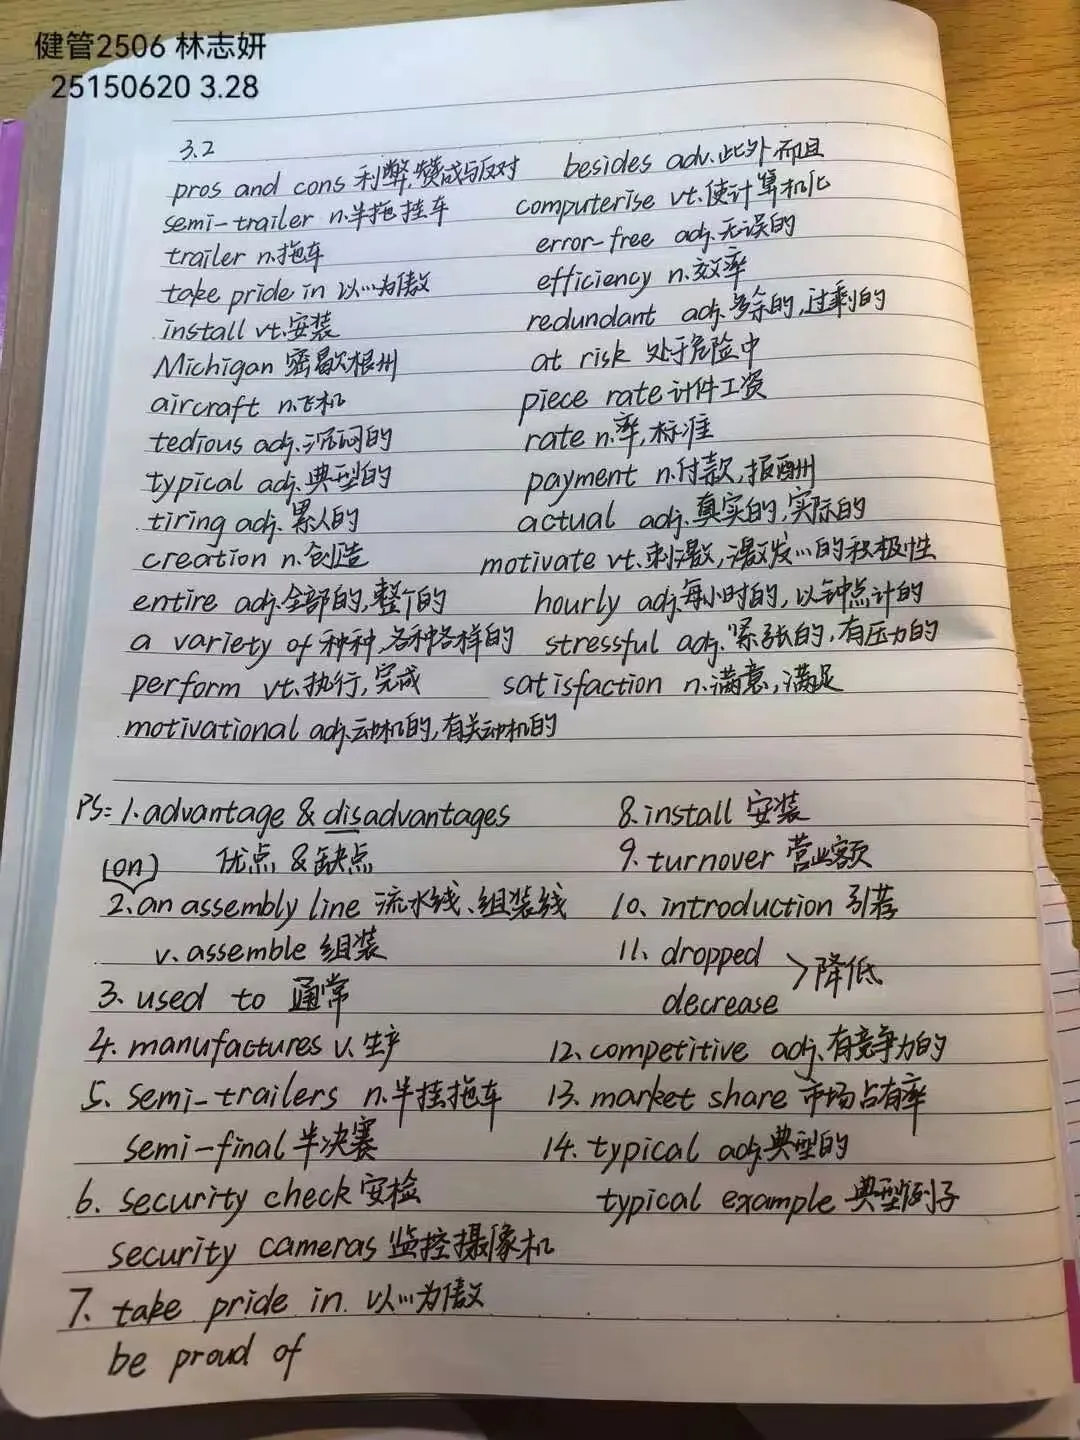 健管2506 林志妍
25150620 3.28
3.2
pros and cons 利弊,赞成与反对 besides adv.此外,而且
semi-trailer n.半拖挂车 computerise vt.使计算机化
trailer n.拖车 error-free adj.无误的
take pride in 以…为傲 efficiency n.效率
install vt.安装 redundant adj.多余的,过剩的
Michigan 密歇根州 at risk 处于危险中
aircraft n.飞机 piece rate 计件工资
tedious adj.沉闷的 rate n.率,标准
typical adj.典型的 payment n.付款,报酬
tiring adj.累人的 actual adj.真实的,实际的
creation n.创造 motivate vt.刺激,激发…的积极性
entire adj.全部的,整个的 hourly adj.每小时的,以钟点计的
a variety of 种种,各种各样的 stressful adj.紧张的,有压力的
perform vt.执行,完成 satisfaction n.满意,满足
motivational adj.动机的,有关动机的
PS: 1.advantage & disadvantages 8.install 安装
(on) 优点 & 缺点 9.turnover 营业额
2.an assembly line 流水线、组装线 10、introduction 引荐
v.assemble 组装 11、dropped
3、used to 通常 decrease >降低
4. manufactures v.生产 12、competitive adj.有竞争力的
5、semi-trailers n.半挂拖车 13、market share 市场占有率
semi-final 半决赛 14、typical adj.典型的
6、security check 安检 typical example 典型例子
security cameras 监控摄像机
7、take pride in 以…为傲
be proud of